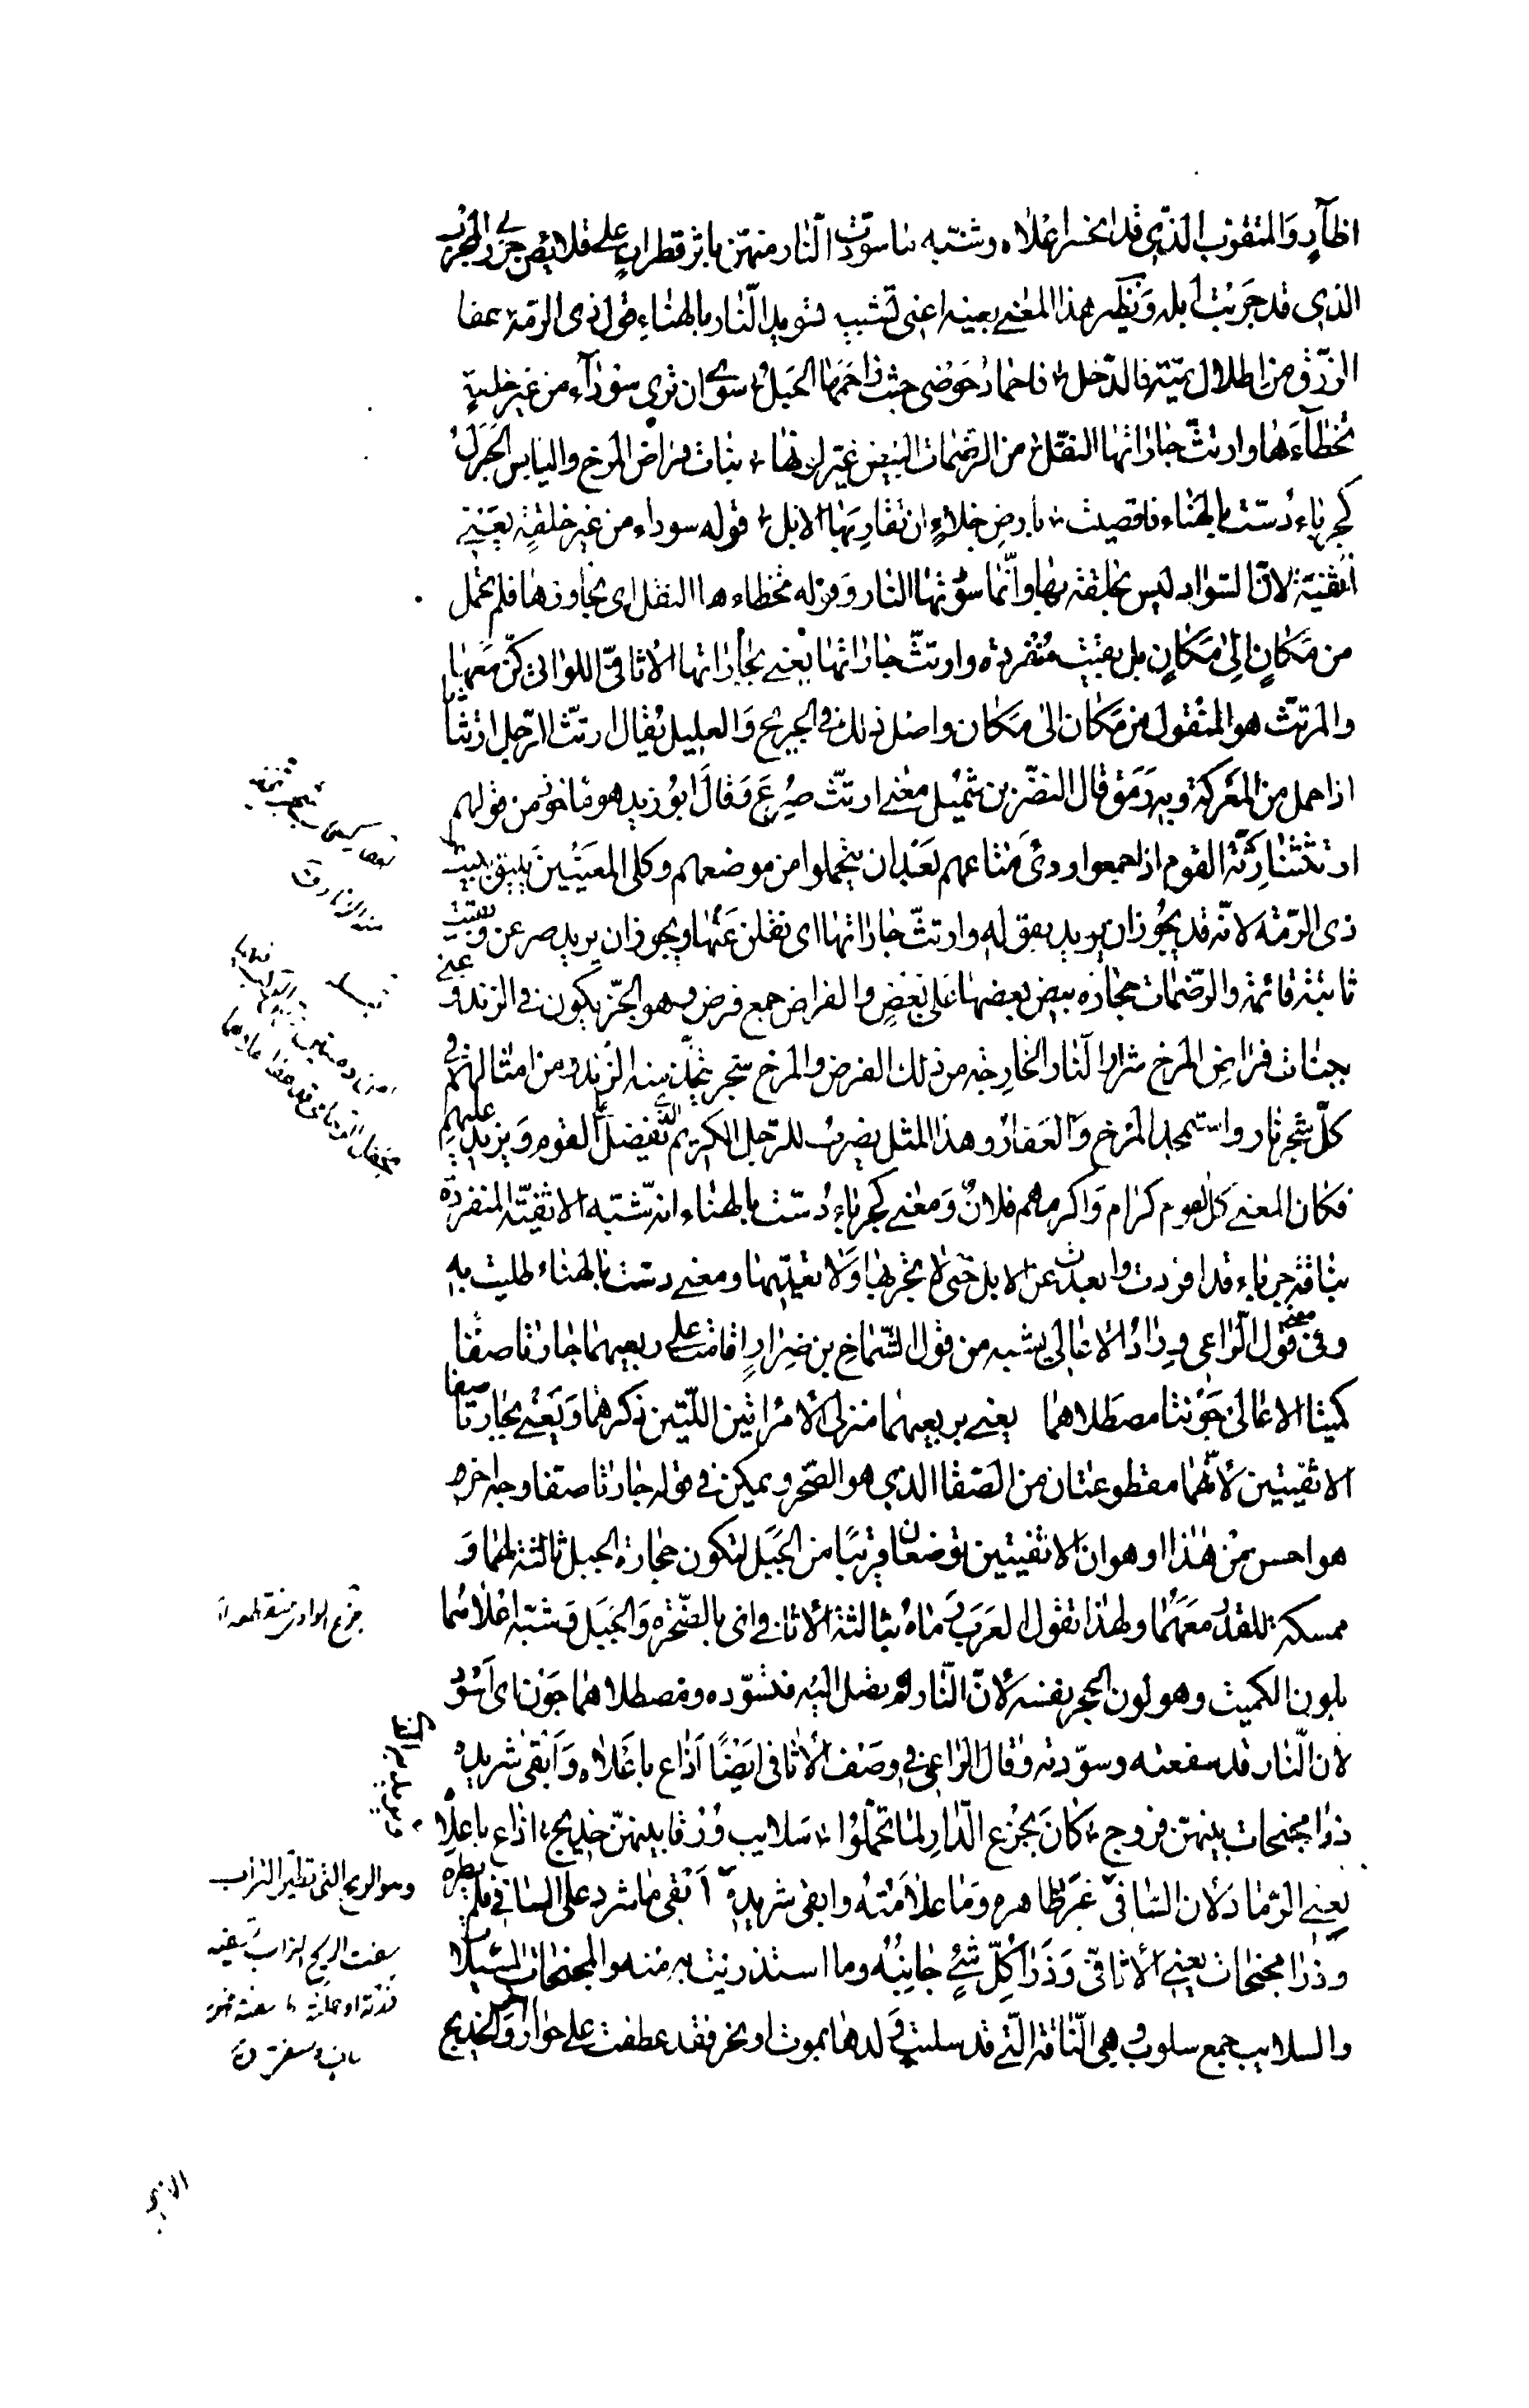 اظآرٍ وَالمنقوب الذي قد انحسر اعلاه وشتبه ما سوّدت النّار منهنّ باثر قطران على قلائص جزز المجرب
الذي قد جربت ابله وَنظير هذا المعنى بعينه اعنى تشبيه تسويد النّار بالهناءِ قول ذى الرمّة عفا
الزرق من اطلال ميّة فالدّحل فاجماد حَوضى حيث زاحمها الحَبل سوى ان ترى سوداء من غير خلقةٍ
تخطاءَها وارتثّ جاراتها النقل من الرضمات البيض غيّر لونها بنات فراض المرخ واليابس الجزل
كجرباء دُسّت بالهناء فاقصيت بارض خلاءٍ ان تقاربها الابل قوله سوداء من غير خلقةٍ يعني
اثفيّة لانّ السّواد ليس بخلقة لها وانّما سوّدتها النار وَقوله تخطاءها النقل اى تجاوزها فلم تحمل
من مَكانٍ الى مَكانٍ بل بقيت منفردة وارتثّ جاراتها يعنى بجاراتها الاثافيّ اللواتى كنّ معها
والمرتثّ هو المنقول من مَكان الى مَكان واصل ذلك في الجريح وَالعليل يُقال ارتثّ الرّجل ارتثاثا
اذا حمل من المعركة وبه رَمَق قال النضر بن شميل معنى ارتثّ صُرِعَ وَقالَ ابو زيد هو ماخوذ من قولهم
ارتثثنا رثّة القوم اذا جمعوا ردئ متاعهم بَعْد ان يتحملوا من موضعهم وكلى المعنيين يليق ببيت
ذى الرّمّة لانّه قد يجُوز ان يريد بقوله وارتثّ جاراتها اى نقلن عَنْها ويجوز ان يريد صرعن وبقيت
ثابتة قائمة والرّضمات حجارة بيض بعضها عَلى بَعْضٍ والفراض جمع فرض وهو الحَزّ يكون في الزند وعنى
ببنات فراض المرخ شرار النّار الخارجة من ذلك الفرض والمرخ شجر يتّخذ منه الزند ومن امثالهم في
كلّ شجر نار واستمجد المرخ وَالعَفار وهذا المثل يضرب للرّجل الكريم الّذي يفضل القوم وَيزيد عليهم
فكان المعنى كل القوم كرام وَاكرمهم فلانٌ وَمعنى كجرباءِ دُسّت بالهناء انّه شبّه الاثفيّة المنفردة
بناقة جرباء قد افردت وابعدت عن الابل حتى لا تجربها وَلا تعديها ومعنى دسّت بالهناء طليت به
وفى معنى قول الرّاعى وِرادُ الاعالى يشبه من قول الشّماخ بن ضِرارٍ اقامت على ربعيهما جارتا صفًا
كميتا الاعالى جَوْنتا مصطلاهما يعنى بربعيهما منزلى الامراتين اللّتين ذكرهما وَيَعْنى بجارتا صفا
الاثفيّتين لانّهما مقطوعتان من الصّفا الذي هو الصّخر ويمكن في قوله جارتا صفا وجه اخر
هو احسن مِنْ هٰذا وهو ان الاثفيتين توضعان قريبًا من الجَبَل لتكون حجارة الجبل ثالثة لهما وَ
ممسكة للقدر معَهُما ولهذا تقول العَرَب رَماهُ بثالثة الاثافي اى بالصّخرة وَالجبَل وَشبّه اعْلاهُما
بلون الكميت وهو لون الحجر بفسه لانّ النّار لم يصل اليْه فتسوّده ومصطلاهما جَوْن اى اَسْوَد
لان النّار قد سفعته وسوّدته وقالَ الرّاعى في وصَف الاثافى ايضًا اَذاع باعْلاه وَاَبْقى شريده
ذرا مجنحات بينهنّ فروج كان بجزع الدّارِ لمّا تحمّلوا سَلايب وُرْقا بينهنّ خديج اذاع باعلاه
يعنى الرّماد لان السّافى غيّر ظاهره وَما عَلا مَتْنهُ وابقى شريدهُ اَبْقى ما شرد على السافى فلم يطره
وذرا مجنحات يعنى الاثافيّ وَذَرَا كُلّ شئٍ جانِبُه وما استذريت به منه والمجنحات المسبلات
والسلايب جمع سلوب وهي النّاقة الّتي قد سلبت ولدها بموت او نحر فقد عطفت على حوار اخر وَالخديج
جزع الوادى منقطعه
وهو الريح التى تطيّر التراب
سفت الريح التراب تسفيه